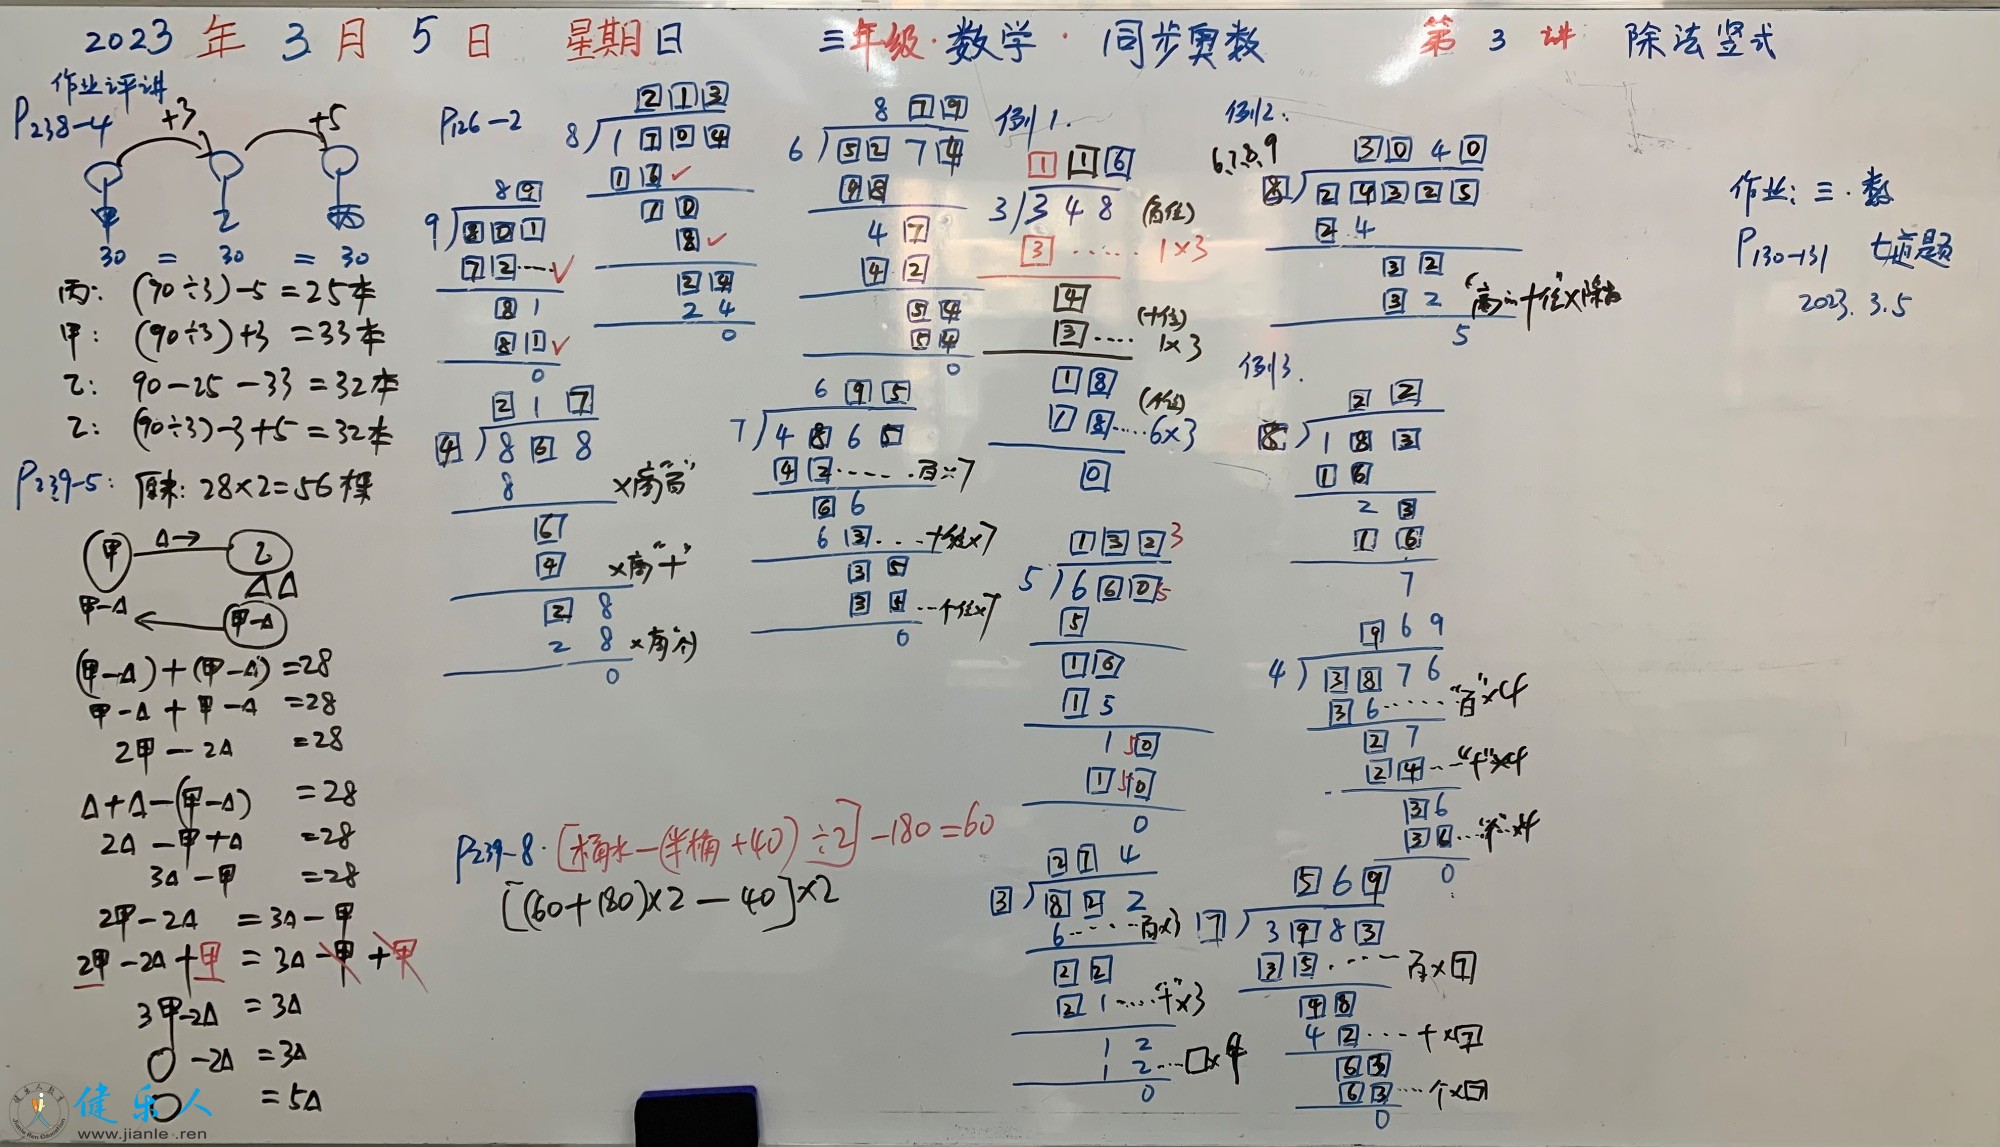 2023 年 3 月 5 日 星期日 三年级·数学·同步奥数 第 3 讲 除法竖式
作业评讲
P238-4
+3 +5
甲 乙 丙
30 = 30 = 30
丙: (90÷3)-5=25本
甲: (90÷3)+3=33本
乙: 90-25-33=32本
乙: (90÷3)-3+5=32本
P239-5: 原来: 28×2=56棵
甲 Δ→ 乙
ΔΔ
甲-Δ 甲-Δ
(甲-Δ)+(甲-Δ)=28
甲-Δ+甲-Δ=28
2甲-2Δ=28
Δ+Δ-(甲-Δ)=28
2Δ-甲+Δ=28
3Δ-甲=28
2甲-2Δ=3Δ-甲
2甲-2Δ+甲=3Δ-甲+甲
3甲-2Δ=3Δ
○-2Δ=3Δ
○=5Δ
健乐人
www.jianle.ren
P126-2
89
9)801
72 ····✓
81
81 ✓
0
217
4)868
8 ×商"百"
6
4 ×商"十"
28
28 ×商"个"
0
213
8)1704
16 ✓
10
8 ✓
24
24
0
879
6)5274
48
47
42
54
54
0
695
7)4865
42 ····百×7
66
63 ····十位×7
35
35 ···个位×7
0
P239-8. [桶水-(半桶+40)÷2]-180=60
[(60+180)×2-40]×2
例1.
116
3)348 (百位)
3 ······ 1×3
4 (十位)
3 ···· 1×3
18 (个位)
18 ···· 6×3
0
132 3
5)660 5
5
16
15
1 5 0
1 5 0
0
274
3)822
6 ····百×3
22
21 ····"十"×3
12
12 ···□×4
0
例2.
6.7.8.9
3040
8)24325
24
32
32 "商的十位"×除数
5
例3.
22
8)183
16
23
16
7
969
4)3876
36 ·····"百"×4
27
24 ···"十"×4
36
36 ···"个"×4
0
569
7)3983
35 ····百×7
48
42 ···十×7
63
63 ····个×7
0
作业: 三·数
P130-131 七道题
2023.3.5